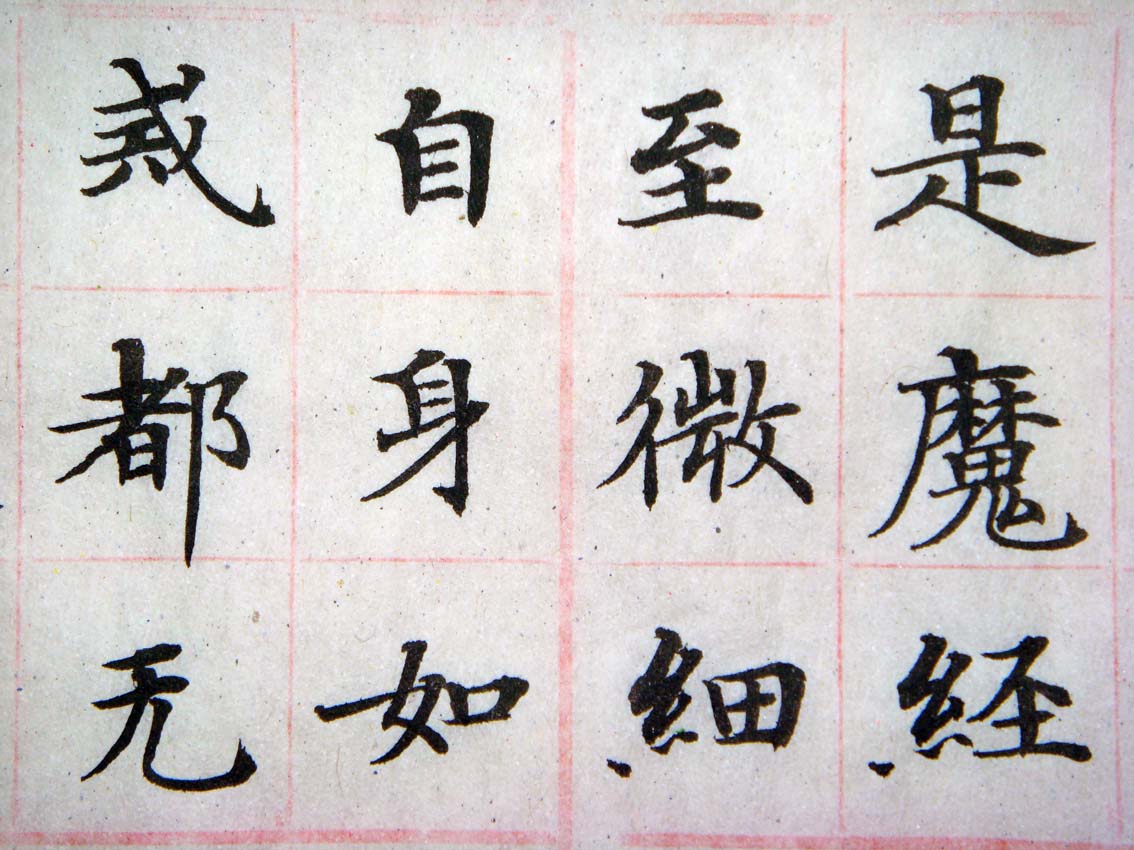 是魔経
至微細
自身如
戒都无